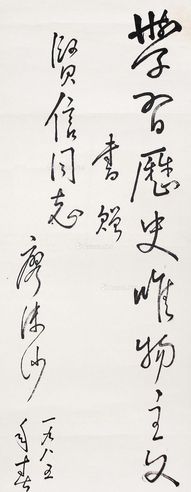 學習歷史唯物主义
書贈
賢信同志
廖沫沙
一九八五年春